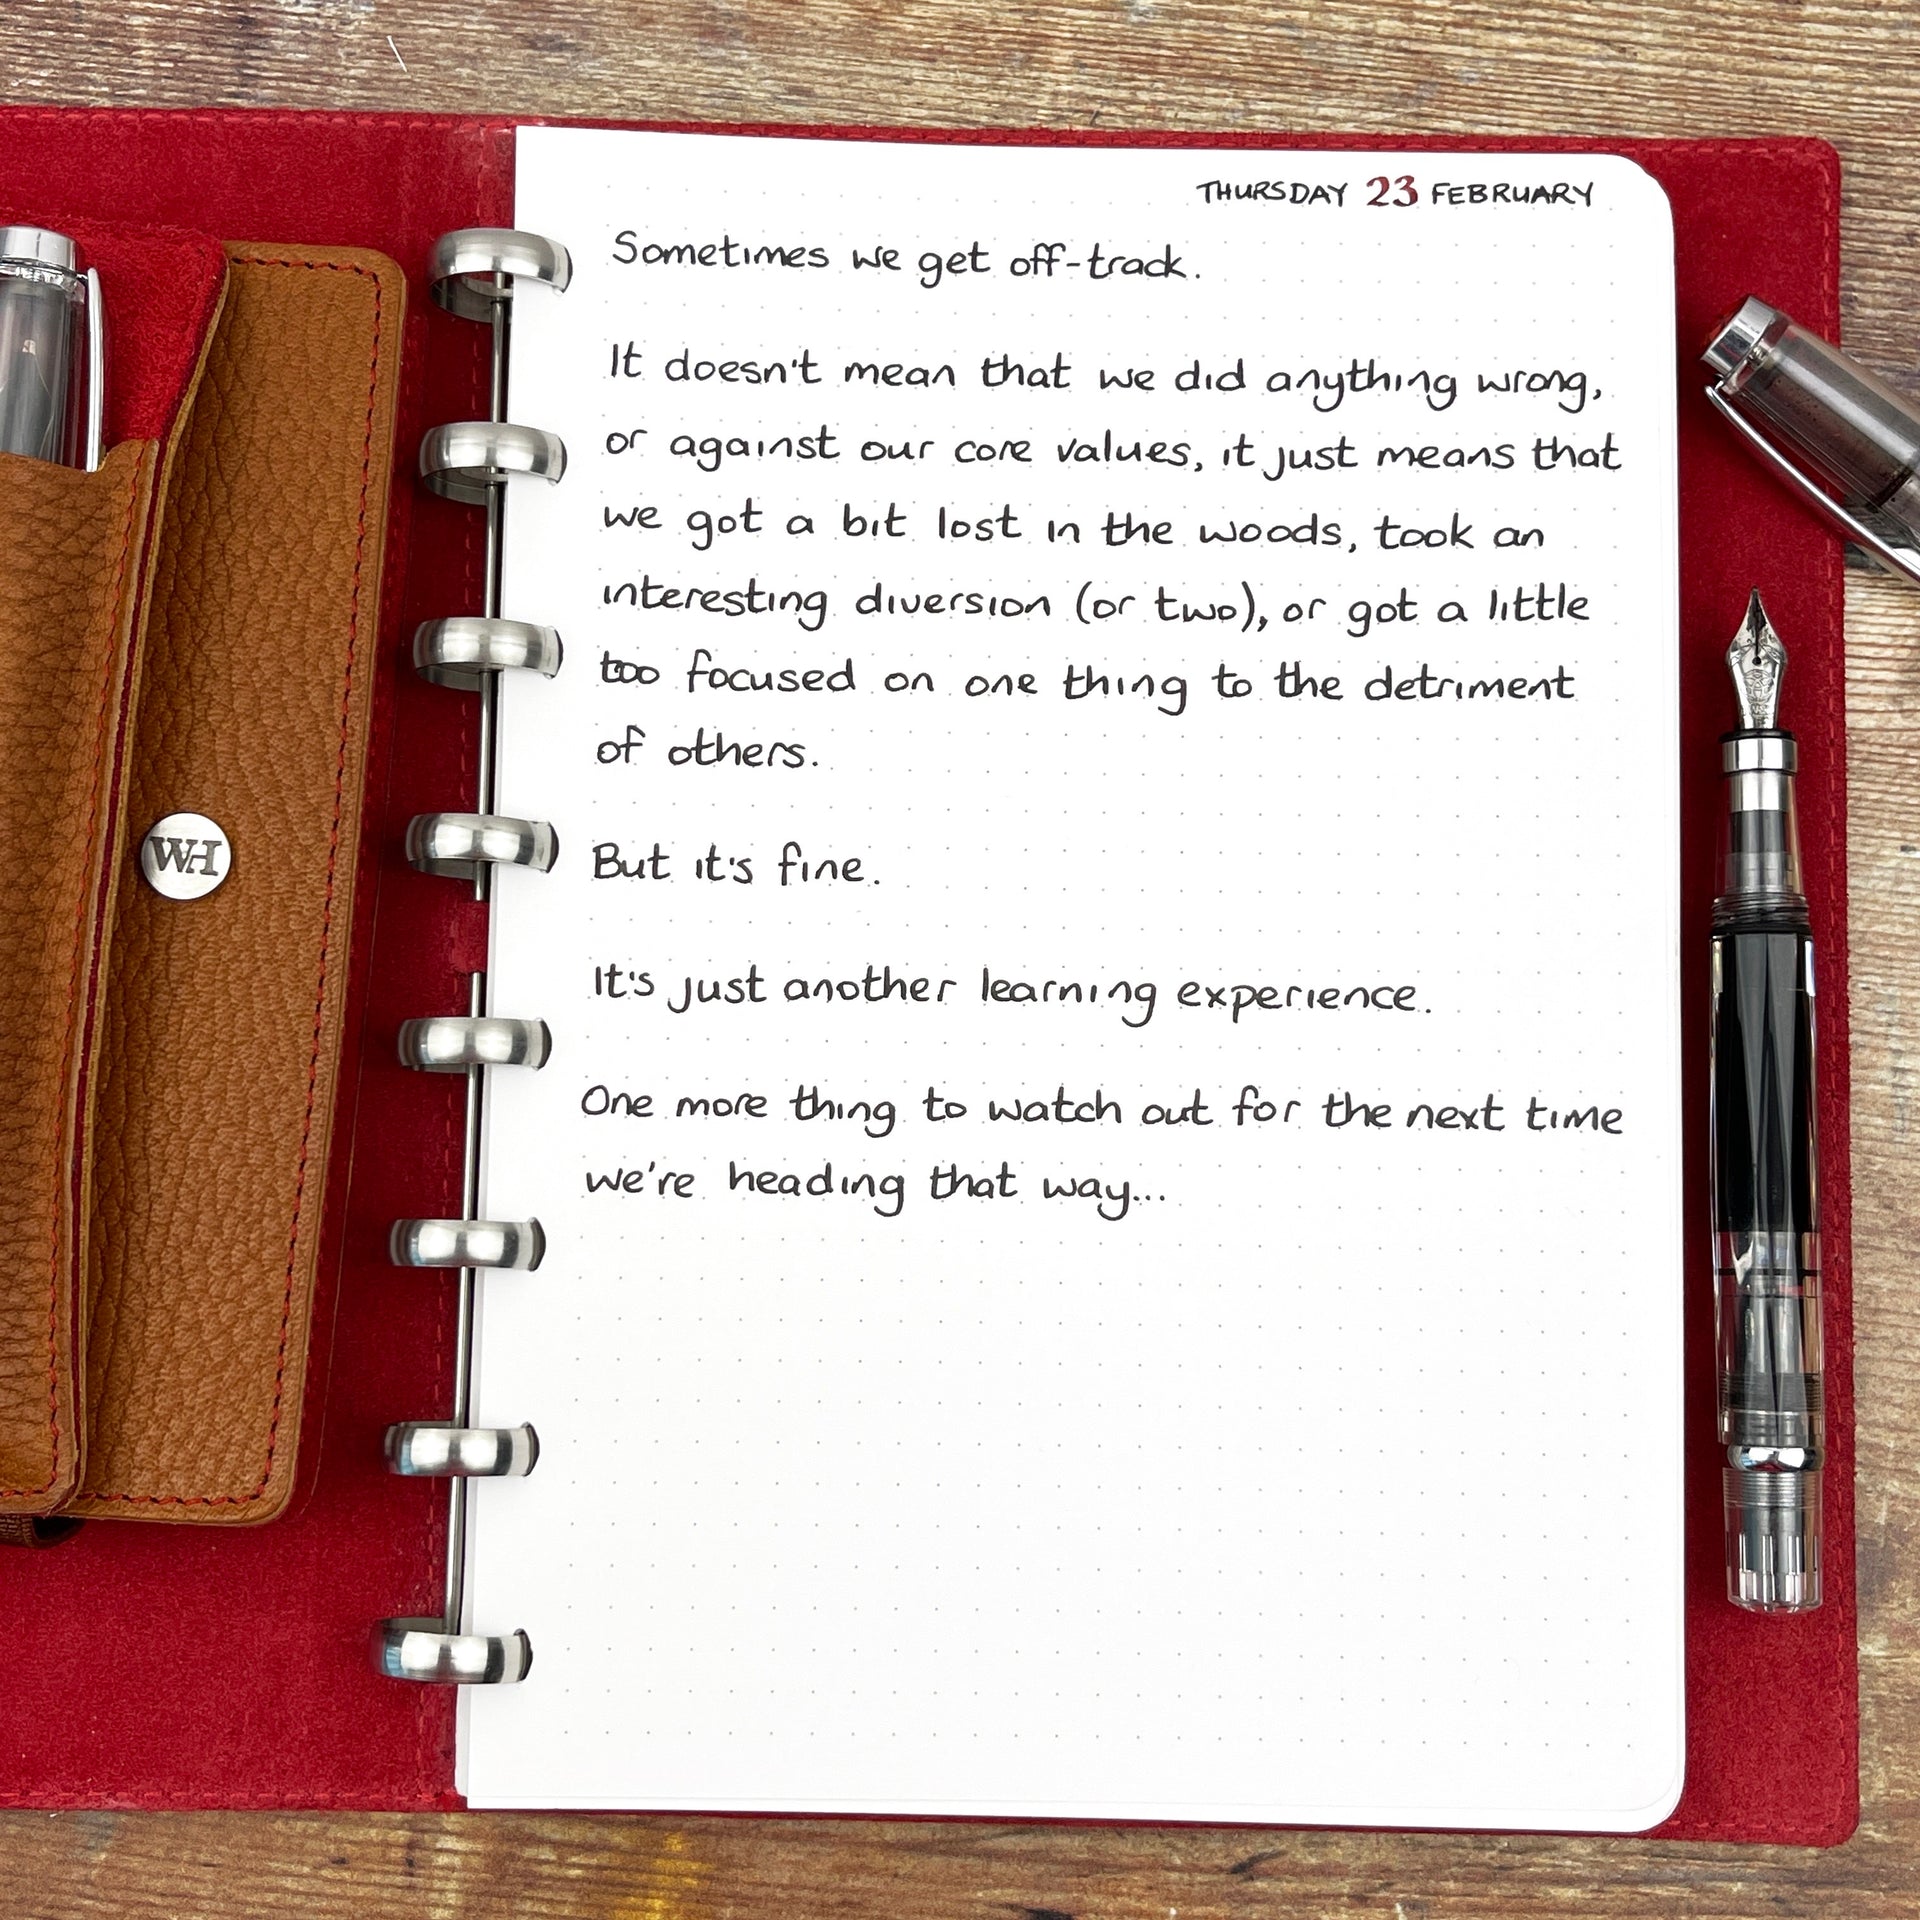 THURSDAY 23 FEBRUARY
Sometimes we get off-track.
It doesn't mean that we did anything wrong,
or against our core values, it just means that
we got a bit lost in the woods, took an
interesting diversion (or two), or got a little
too focused on one thing to the detriment
of others.
But it's fine.
It's just another learning experience.
One more thing to watch out for the next time
we're heading that way...
WH